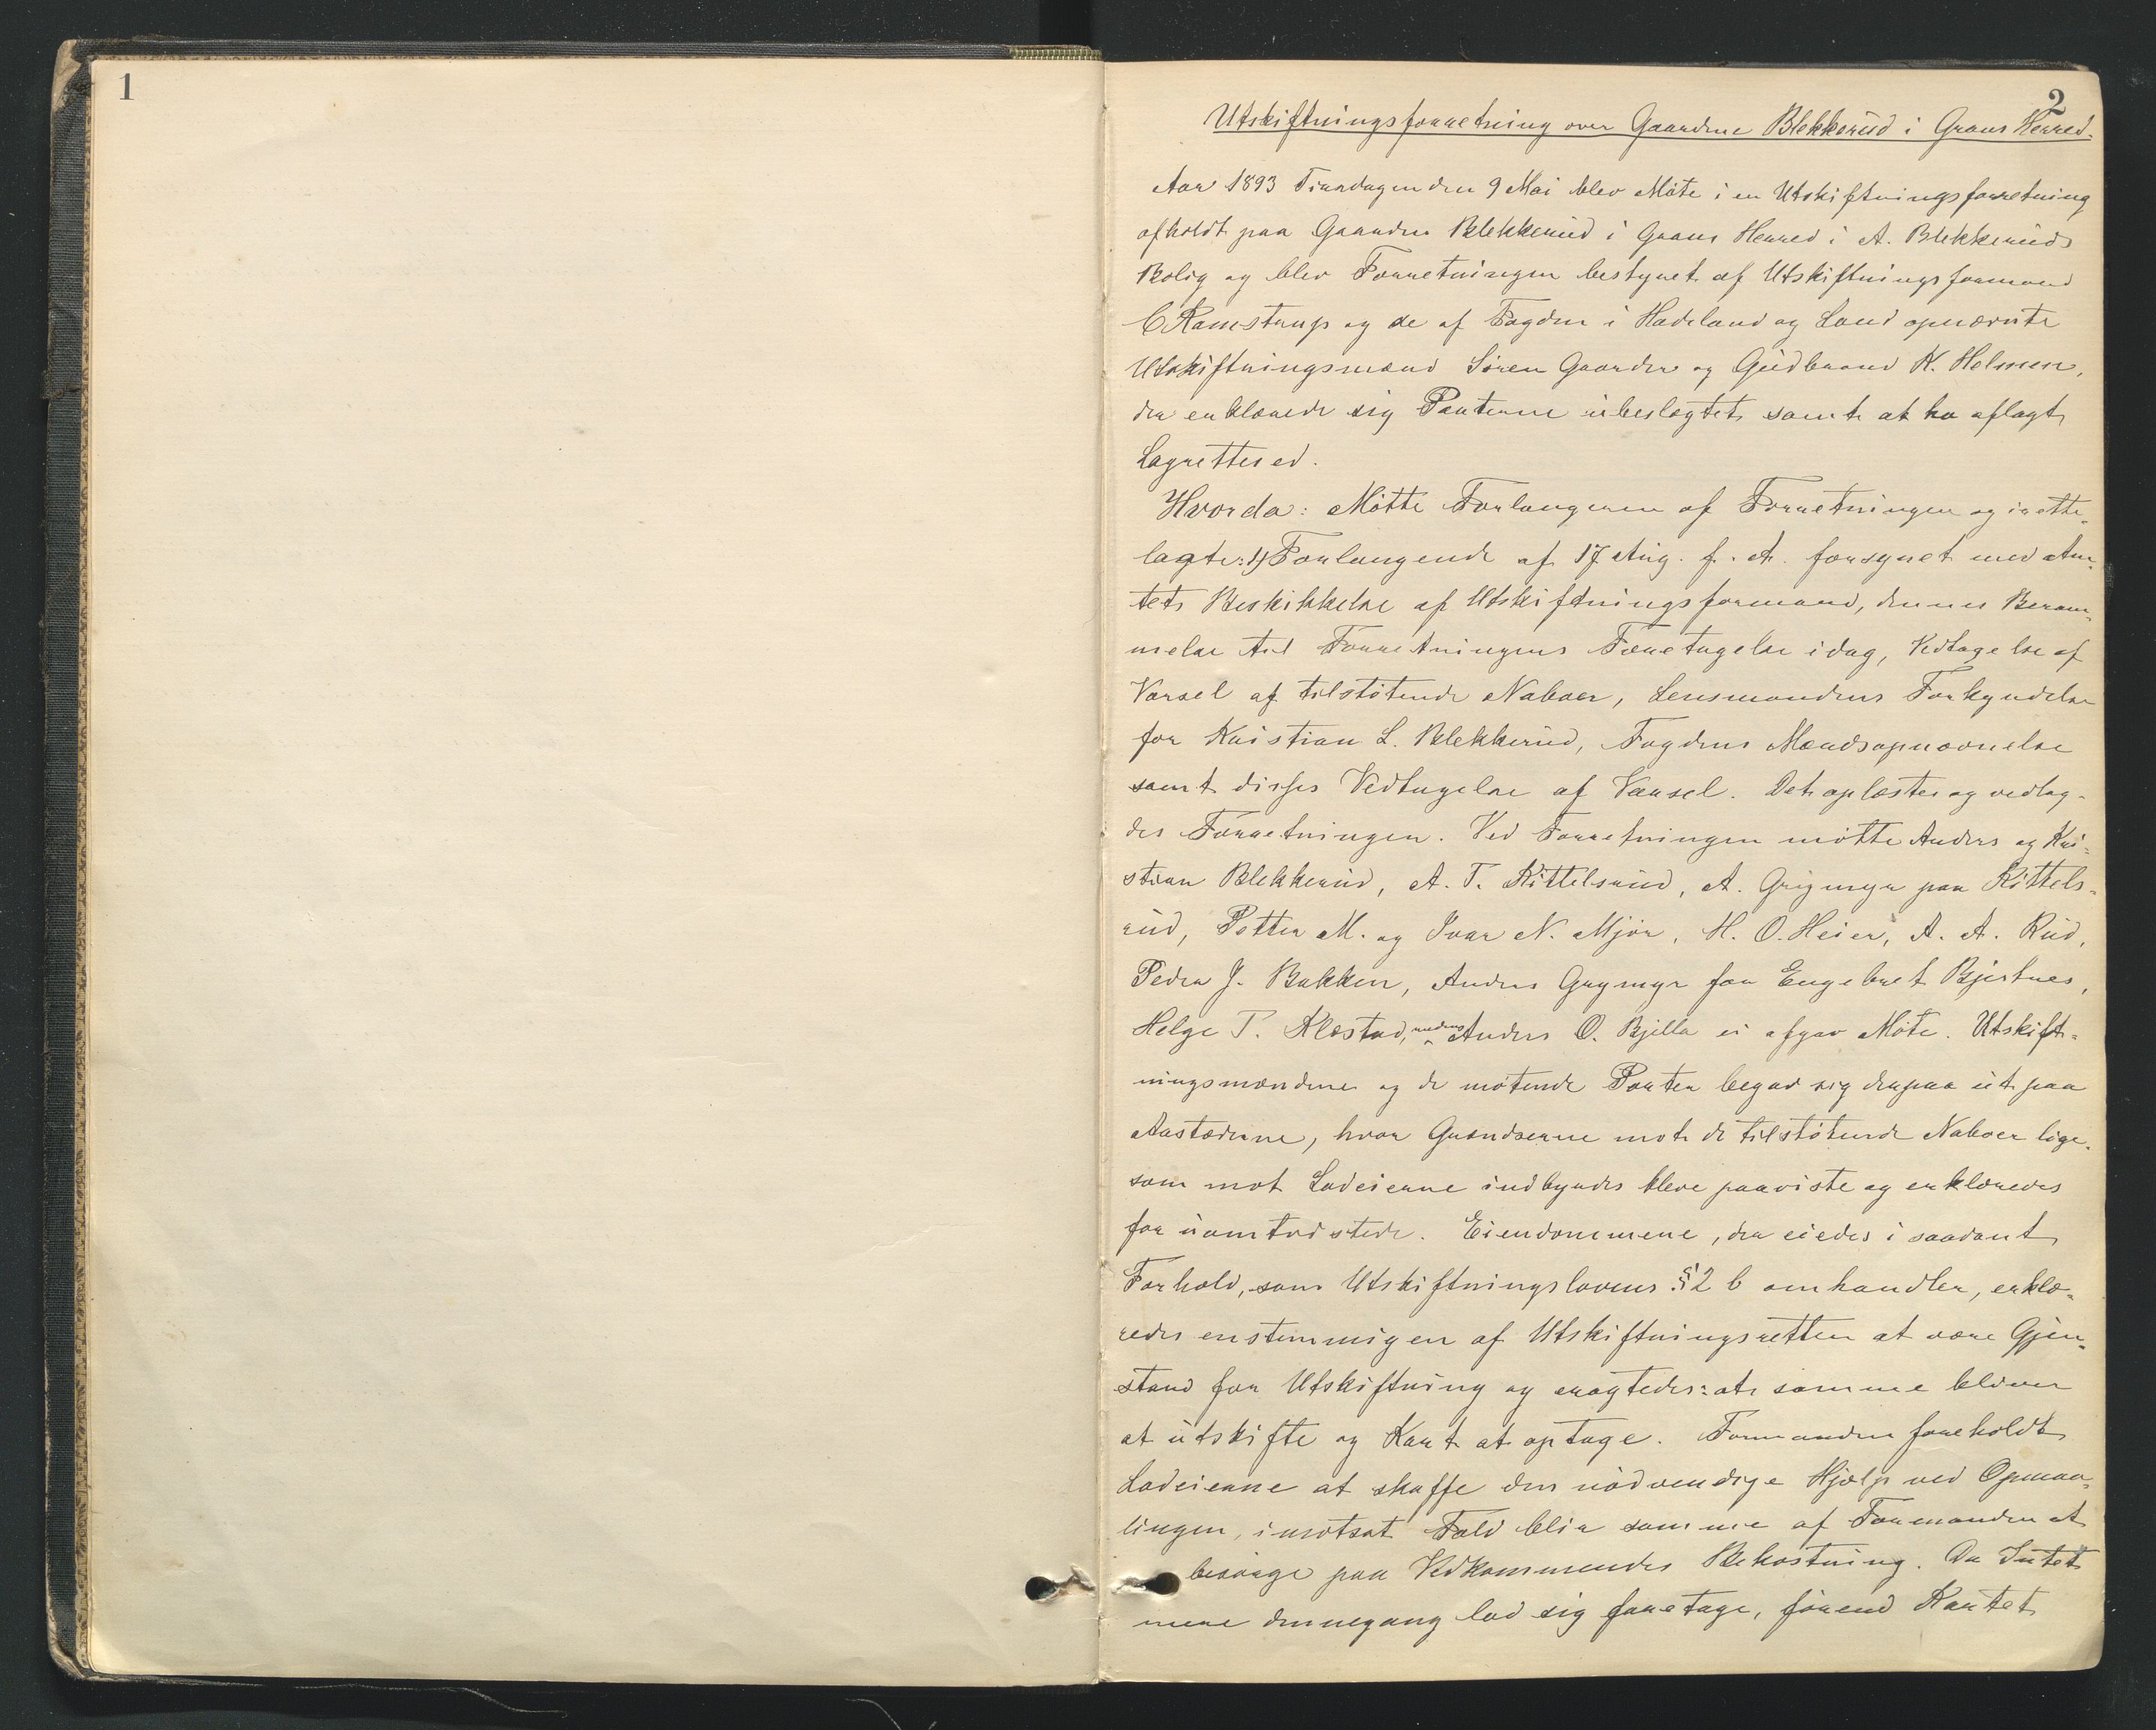 1
2
Utskiftningsforretning over Gaardene Blekkerud i Grans Herred.
Aar 1893 Tirsdagen den 9 Mai blev Möte i en Utskiftningsforretning
afholdt paa Gaarden Blekkerud i Grans Herred i A. Blekkeruds
Bolig og blev Forretningen bestyret af Utskiftningsformand
C Ramstrup og de af Fogden i Hadeland og Land opnævnte
Utskiftningsmænd Sören Gaarder og Gudbrand K. Helmen,
der erklærede sig Parterne ubeslægtet samt at ha aflagt
Lagrettesed.
Hvorda: Mötte Forlangeren af Forretningen og irette-
lagte: 1) Forlangende af 17 Aug. f. A. forsynet med Am-
tets Beskikkelse af Utskiftningsformand, dennes Beram-
melse til Forretningens Foretagelse idag, Vedtagelse af
Varsel af tilstötende Naboer, Lensmandens Forkyndelse
for Kristian L. Blekkerud, Fogdens Mændsopnævnelse
samt disses Vedtagelse af Varsel. Det oplæstes og vedlag-
des Forretningen. Ved Forretningen mötte Anders og Kri-
stian Blekkerud, A. T. Kittelsrud, A. Grigmyr paa Kittels-
rud, Petter M. og Ivar N. Mjör, H. O. Heier, A. A. Rud,
Peder J. Bakken, Anders Grymyr for Engebret Bjertnes,
Helge T. Klæstad, medens Anders O. Bjella ei afgav Möte. Utskift-
ningsmændene og de mötende Parter begav sig derpaa ut paa
Aastæderne, hvor Grændserne mot de tilstötende Naboer lige-
som mot Lodeierne indbyrdes bleve paaviste og erklæredes
for uomtvistede. Eiendommene, der eiedes i saadant
Forhold, som Utskiftningslovens § 2 b omhandler, erklæ-
redes enstemmigen af Utskiftningsretten at være Gjen-
stand for Utskiftning og eragtedes: at samme bliver
at utskifte og Kart at optage. Formanden foreholdt
Lodeierne at skaffe den nödvendige Hjælp ved Opmaa-
lingen, i motsat Fald blir samme af Formanden at
besörge paa Vedkommendes Bekostning. Da Intet
mere dennegang lod sig foretage, förend Kartet